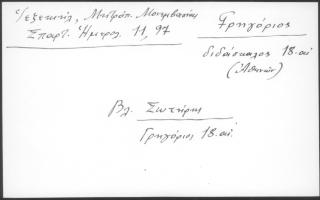 Ἰεζεκιήλ, Μητρόπ. Μονεμβασίας
Σπαρτ. Ἡμερολ. 11, 97
Γρηγόριος
διδάσκαλος 18. αἰ.
(Ἀθηνῶν)
Βλ. Σωτήρης
Γρηγόριος 18. αἰ.